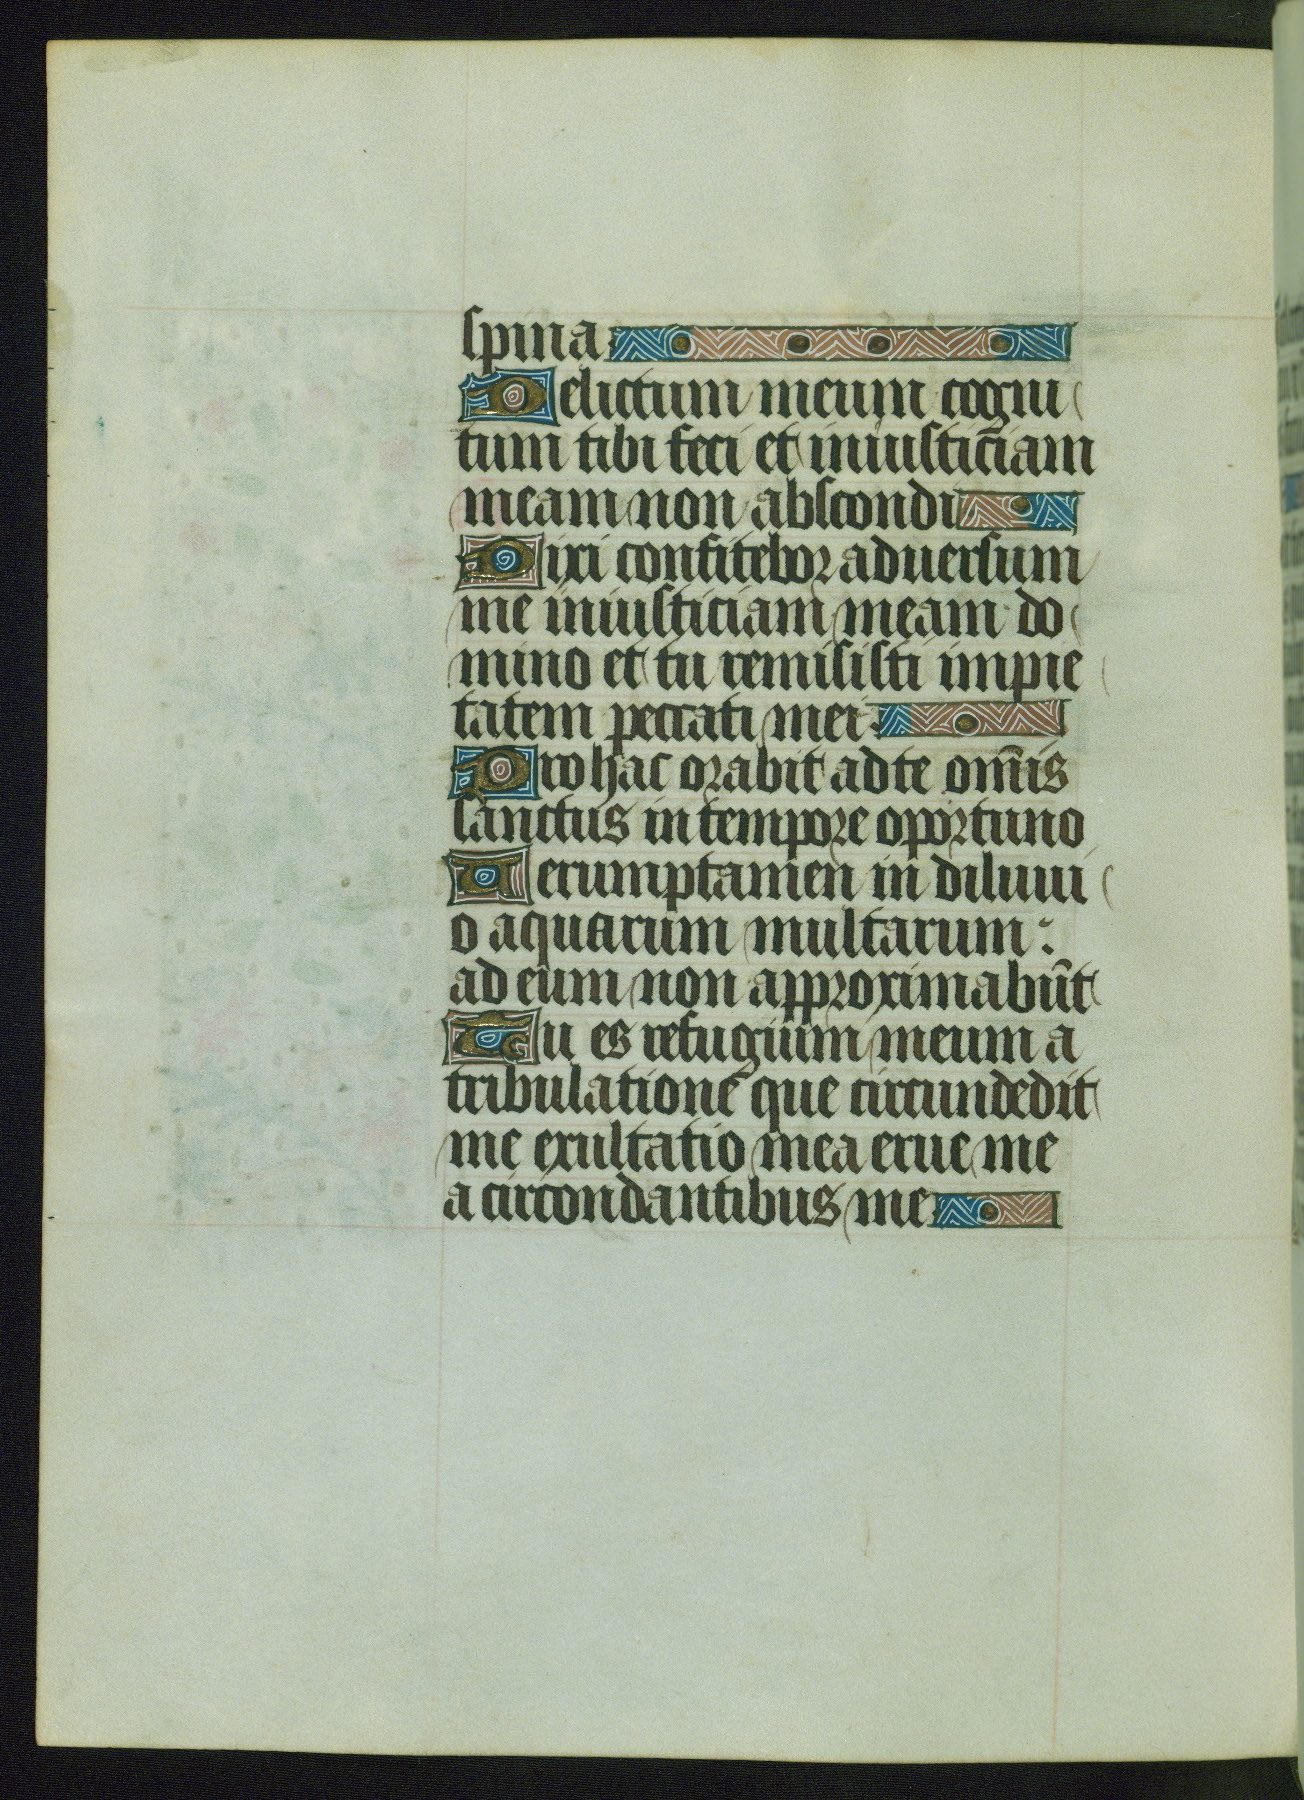 spina
Delictum meum cogni
tum tibi feci et iniusticiam
meam non abscondi
Dixi confitebor adversum
me iniusticiam meam do
mino et tu remisisti impie
tatem peccati mei
Pro hac orabit ad te om̄is
sanctus in tempore oportuno
Uerumptamen in diluui
o aquarum multarum :
ad eum non approximabūt
Tu es refugium meum a
tribulatione que circundedit
me exultatio mea erue me
a circondantibus me